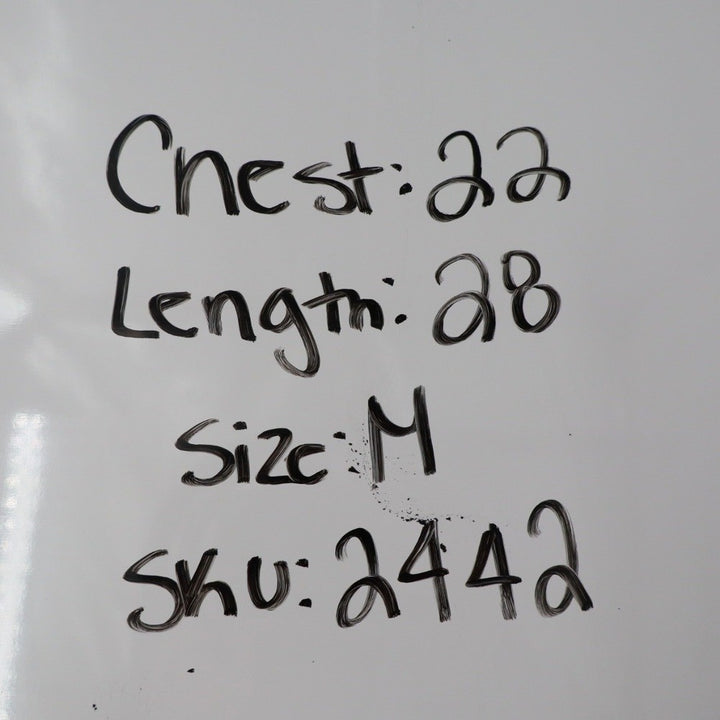 Chest: 22
Length: 28
Size: M
SKU: 2442